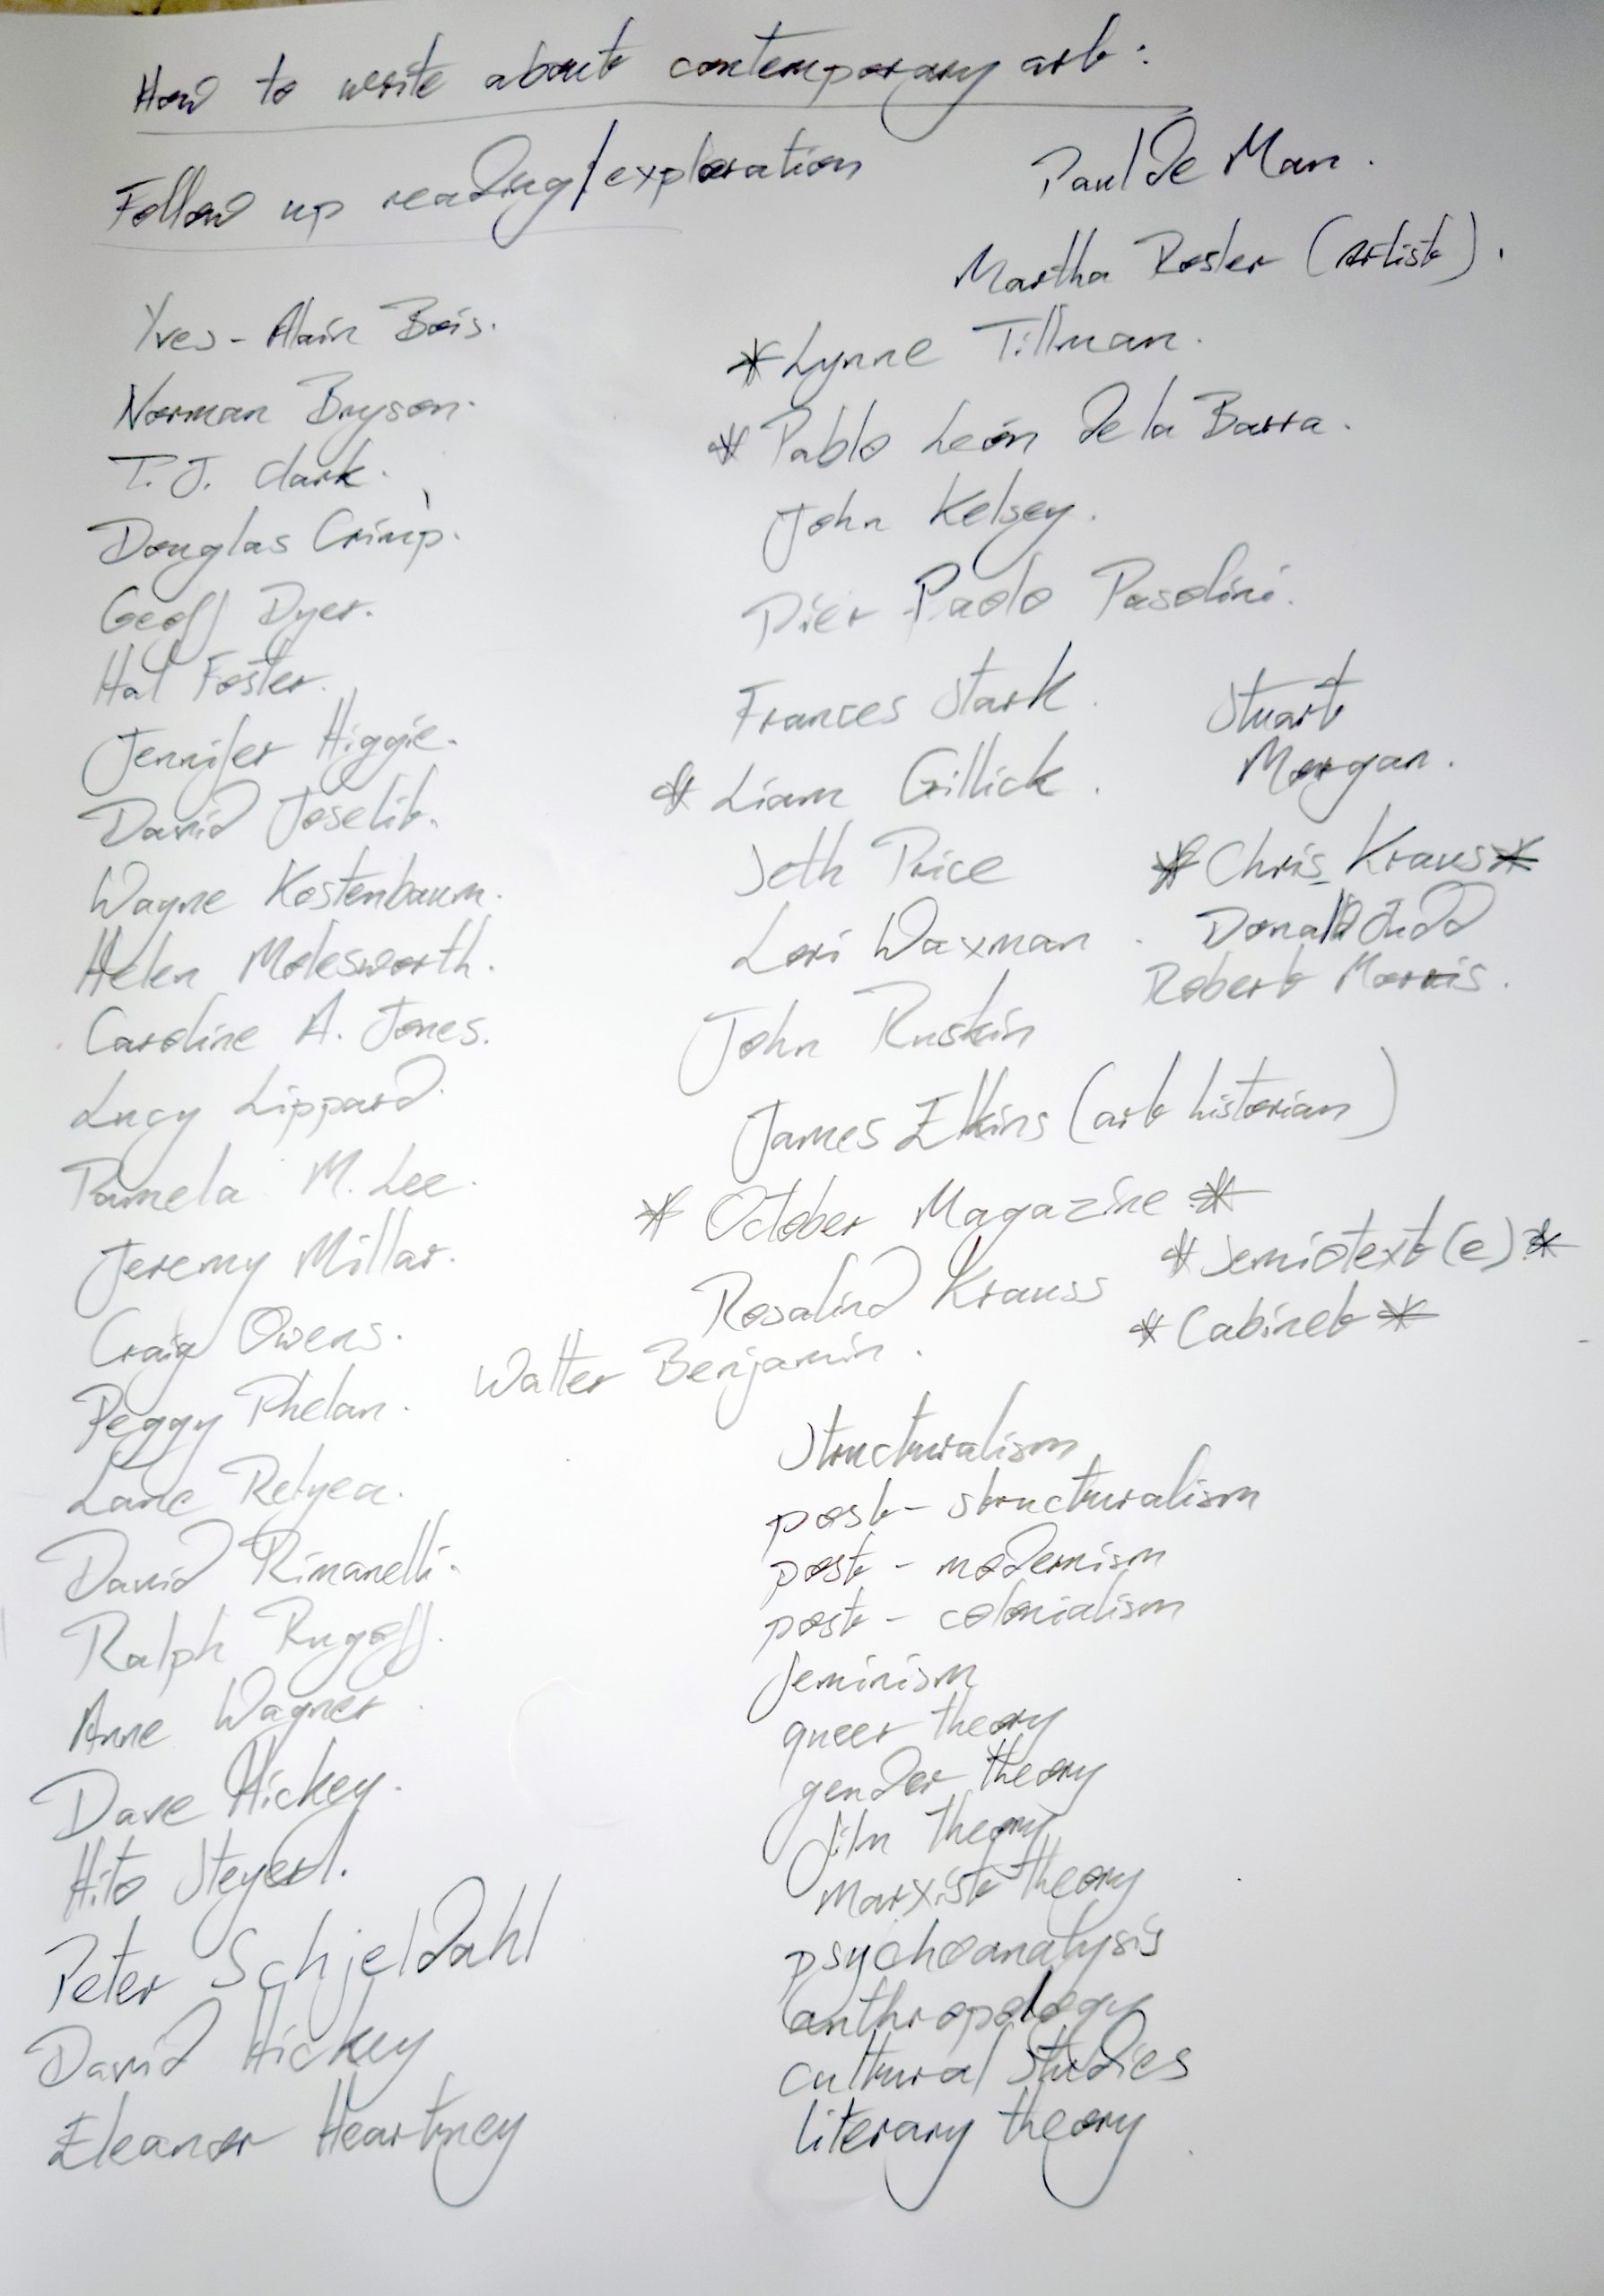 How to write about contemporary art:
Follow up reading/exploration
Yves-Alain Bois.
Norman Bryson.
T.J. Clark.
Douglas Crimp.
Geoff Dyer.
Hal Foster.
Jennifer Higgie.
David Joselit.
Wayne Kostenbaum.
Helen Molesworth.
Caroline A. Jones.
Lucy Lippard.
Pamela M. Lee.
Jeremy Millar.
Craig Owens.
Peggy Phelan.
Lane Relyea.
David Rimanelli.
Ralph Rugoff.
Anne Wagner.
Dave Hickey.
Hito Steyerl.
Peter Schjeldahl
David Hickey
Eleanor Heartney
Paul de Man.
Martha Rosler (Artist).
*Lynne Tillman.
*Pablo León de la Barra.
John Kelsey.
Pier Paolo Pasolini.
Frances Stark.
*Liam Gillick.
Seth Price
Lori Waxman.
John Ruskin
Stuart
Morgan.
*Chris Kraus*
Donald Judd
Robert Morris.
James Elkins (art historian)
* October Magazine *
Rosalind Krauss
Walter Benjamin.
*Semiotext(e)*
*Cabinet*
Structuralism
post-structuralism
post-modernism
post-colonialism
feminism
queer theory
gender theory
film theory
Marxist theory
psychoanalysis
anthropology
cultural Studies
literary theory